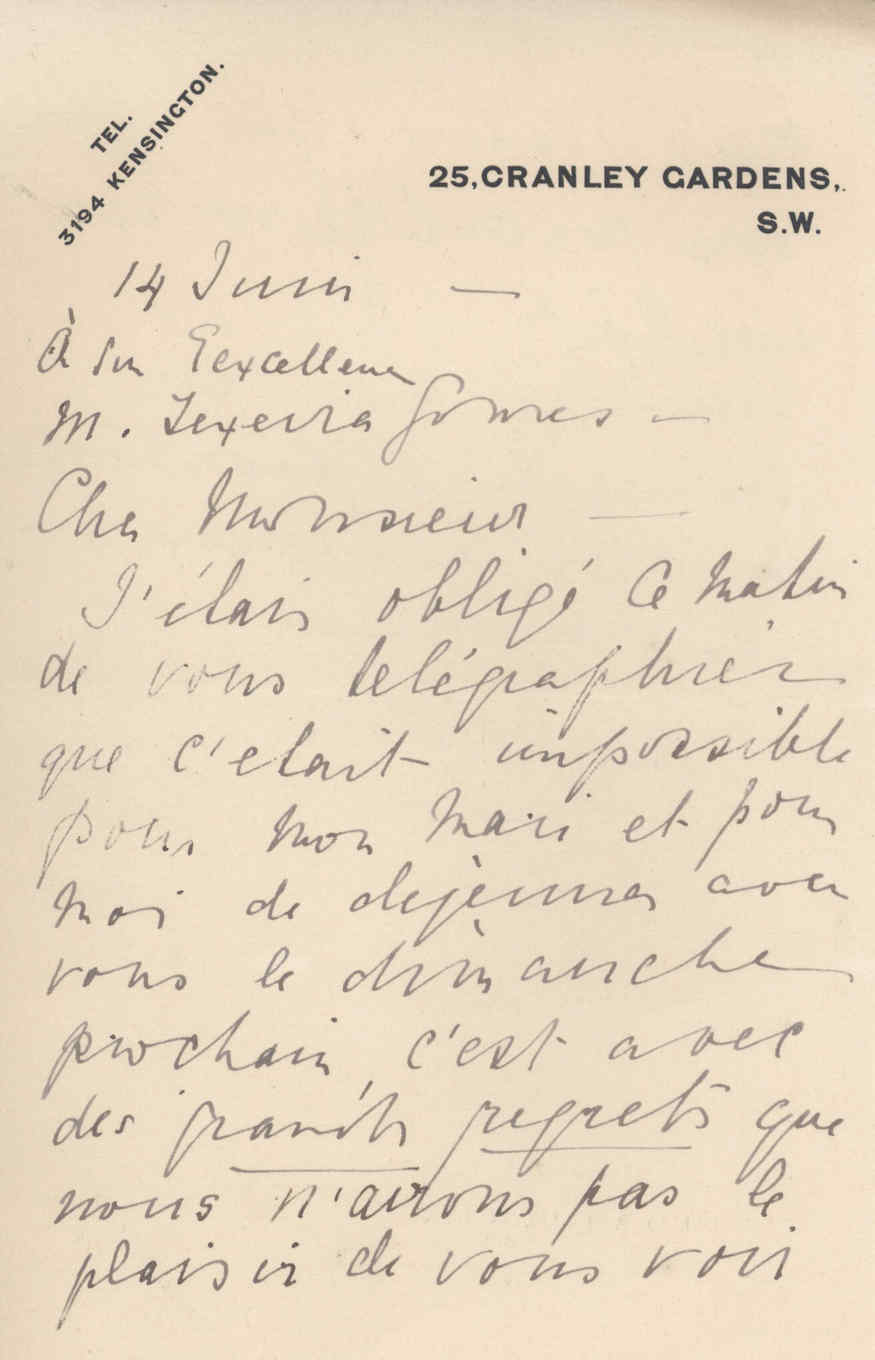 TEL.
3194 KENSINGTON.
25, CRANLEY GARDENS,
S.W.
14 Juin —
À son Eexcellence
M. Texeira Gomes —
Cher Monsieur —
J'étais obligé ce matin
de vous telégraphier
que c'etait impossible
pour mon mari et pour
moi de dejèuner avec
vous le dimanche
prochain, c'est avec
des grands regrets que
nous n'aurons pas le
plaisir de vous voir